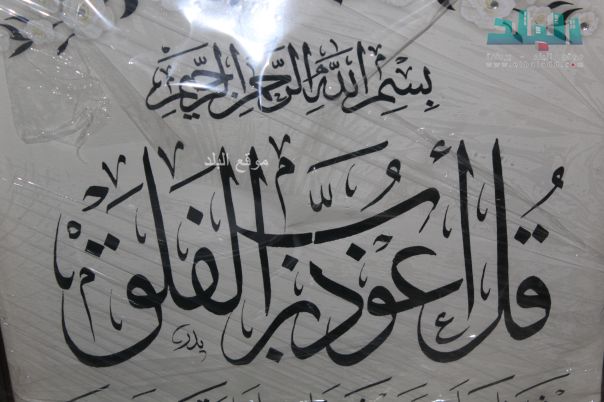 البلد
بِسْمِ اللَّهِ الرَّحْمَنِ الرَّحِيمِ
موقع البلد
قُلْ أَعُوذُ بِرَبِّ الْفَلَقِ